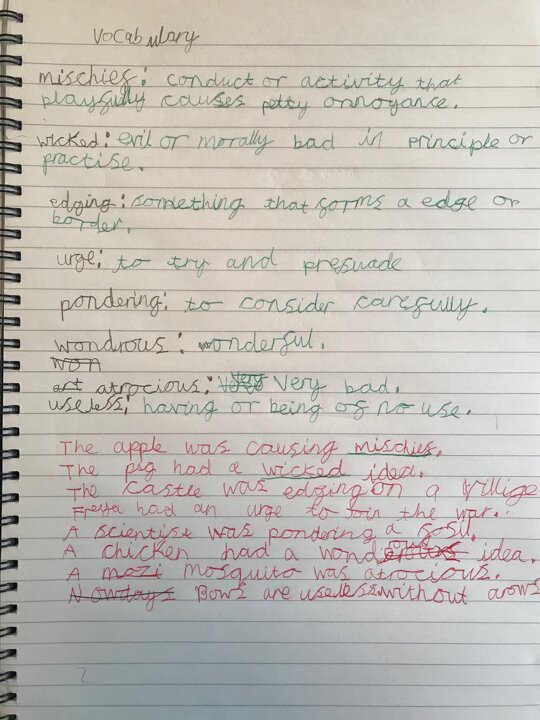 Vocabulary
mischief: conduct or activity that
playfully causes petty annoyance.
wicked: evil or morally bad in principle or
practise.
edging: something that forms a edge or
border.
urge: to try and presuade
pondering: to consider carefully.
wondrous: wonderful.
won
art atrocious: Very Very bad.
useless: having or being of no use.
The apple was causing mischief.
The pig had a wicked idea.
The castle was edging on a village
Freya had an urge to join the war.
A scientist was pondering a fosil.
A chicken had a wondrous idea.
A mozi Mosquito was atrocious.
Nowdays Bows are useless without arows
2